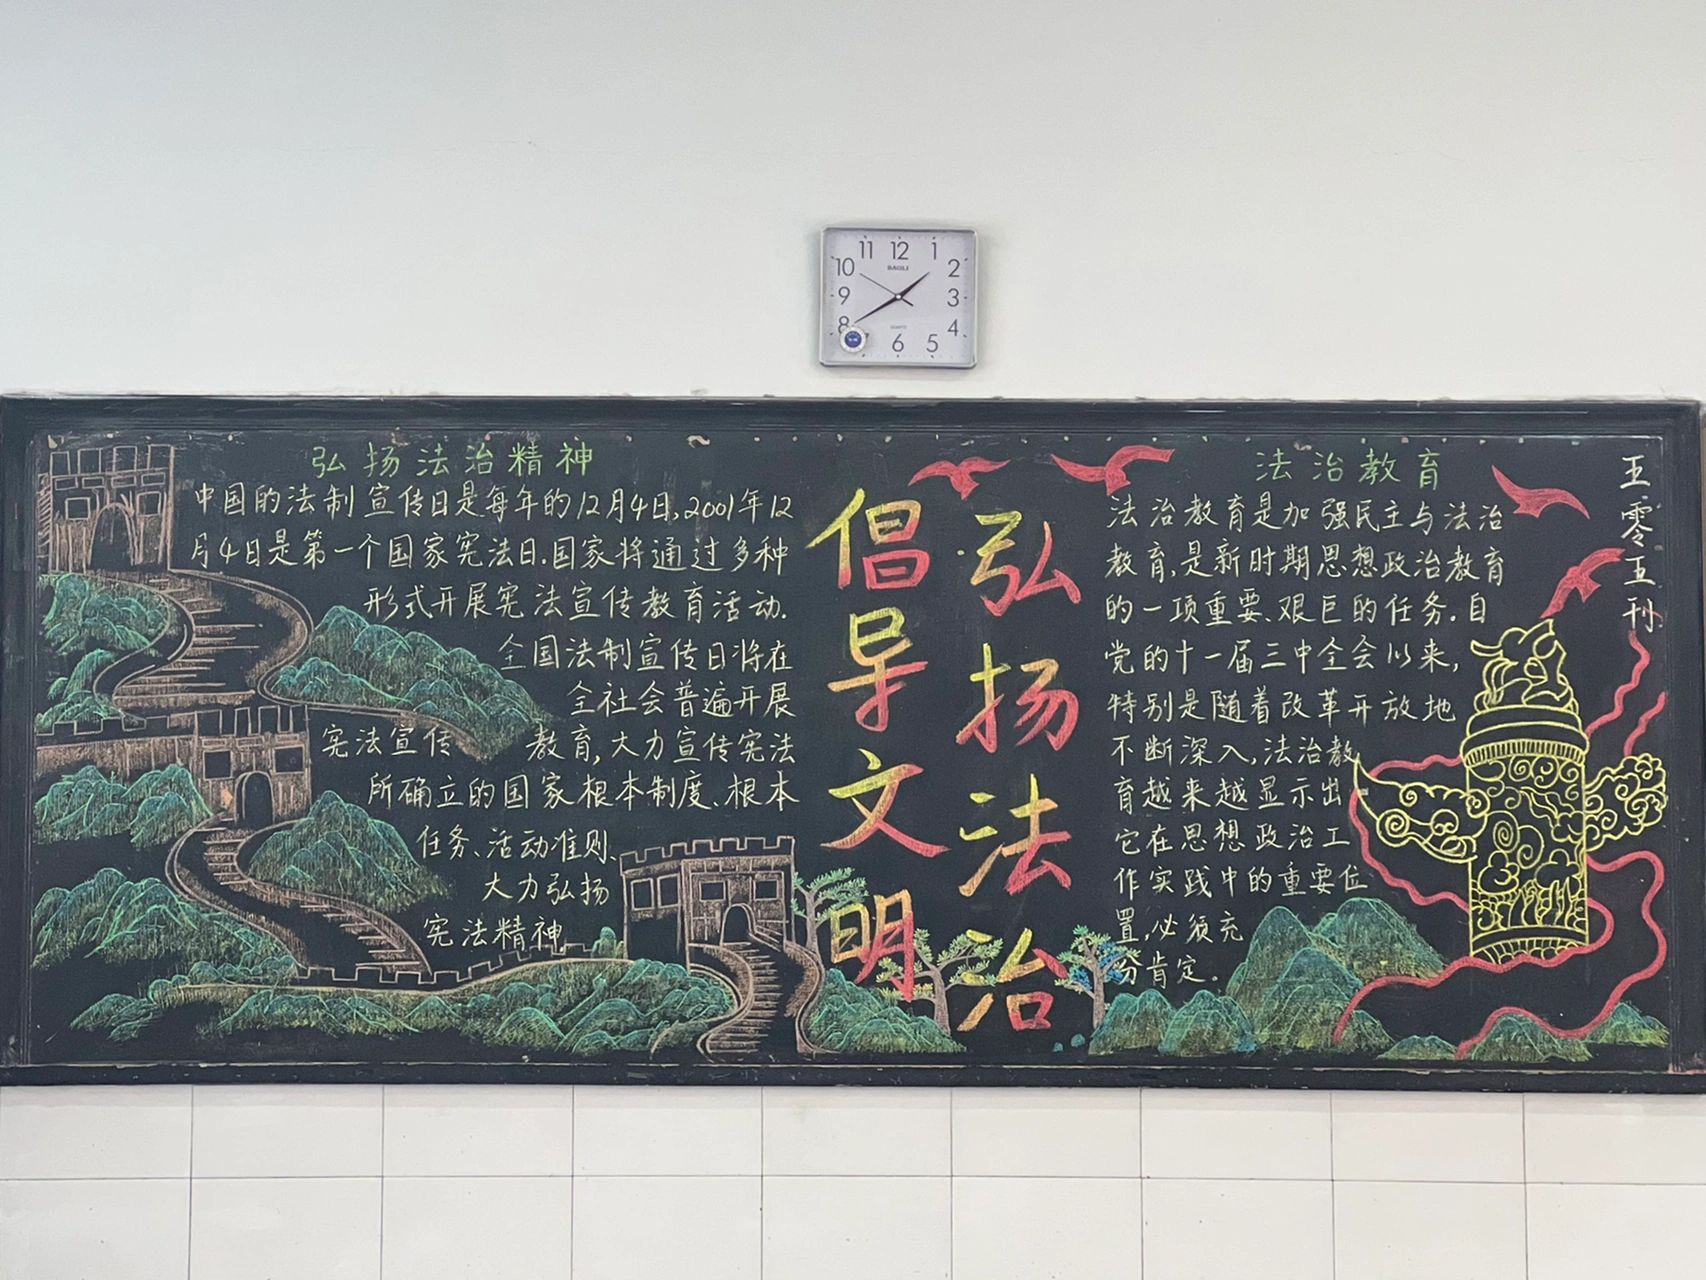 11 12 1
10 BAOLI 2
9 3
8 QUARTZ 4
6 5
弘扬法治精神
中国的法制宣传日是每年的12月4日,2001年12
月4日是第一个国家宪法日.国家将通过多种
形式开展宪法宣传教育活动.
全国法制宣传日将在
全社会普遍开展
宪法宣传 教育,大力宣传宪法
所确立的国家根本制度、根本
任务、活动准则、
大力弘扬
宪法精神。
弘扬法治
倡导文明
法治教育
法治教育是加强民主与法治
教育,是新时期思想政治教育
的一项重要、艰巨的任务.自
党的十一届三中全会以来,
特别是随着改革开放地
不断深入,法治教
育越来越显示出
它在思想政治工
作实践中的重要位
置,必须充
分肯定。
五零五刊